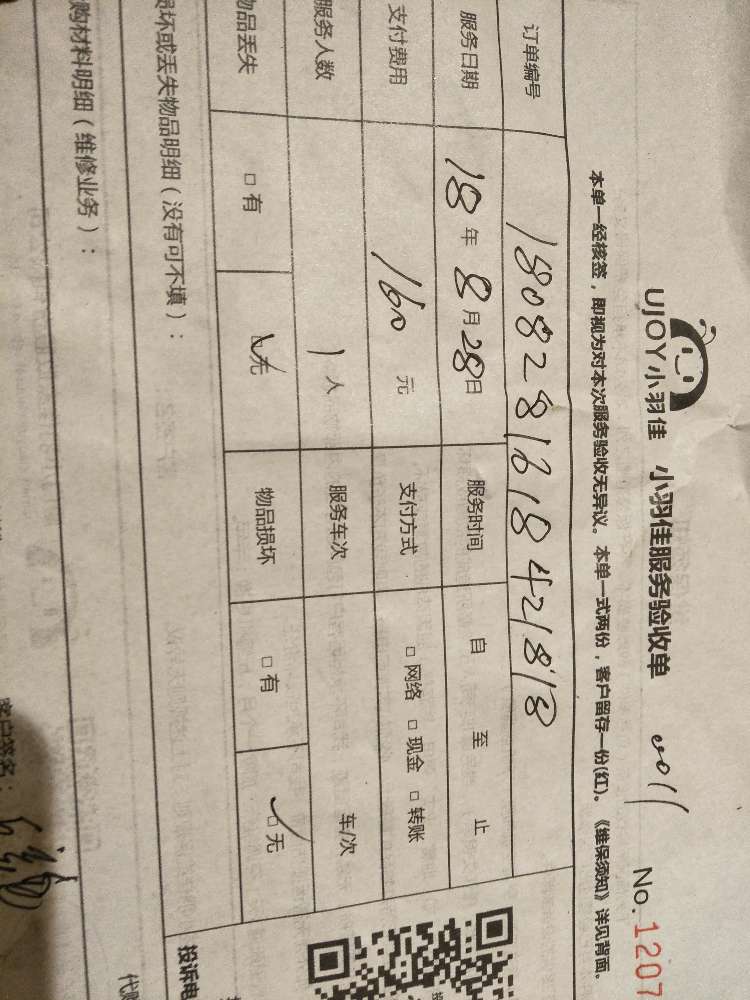 UJOY小羽佳 小羽佳服务验收单 No.1207
本单一经核签，即视为对本次服务验收无异议。本单一式两份，客户留存一份(红)。《维保须知》详见背面。
订单编号 1808281618421818
服务日期 18年8月28日 服务时间 自 至 止
支付费用 160元 支付方式 □网络 □现金 □转账
服务人数 1人 服务车次 车/次
物品丢失 □有 □无 物品损坏 □有 □无
损坏或丢失物品明细（没有可不填）：
投诉电
购材料明细（维修业务）：
代购
客户签名：